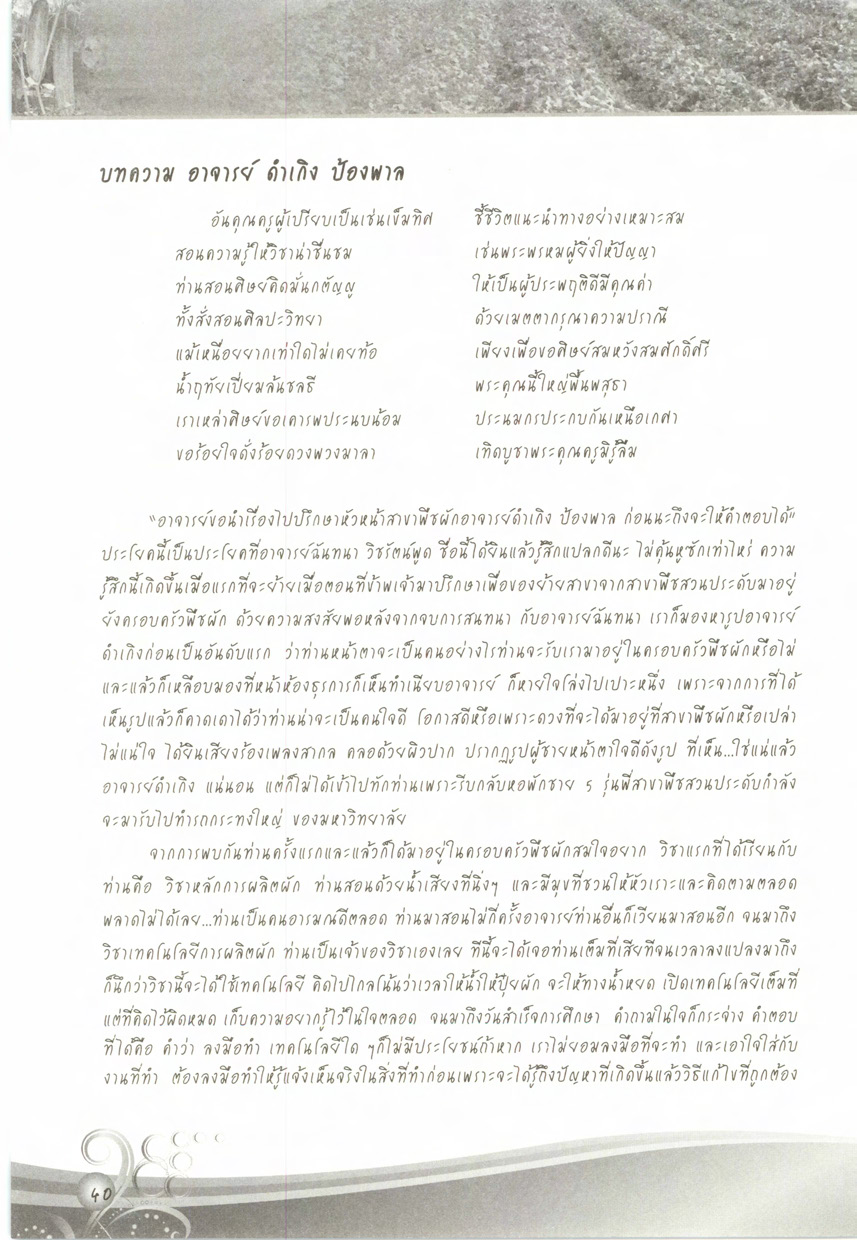 บทความ อาจารย์ ดำเกิง ป้องพาล
อันคุณครูผู้เปรียบเป็นเช่นเข็มทิศ ชี้ชีวิตแนะนำทางอย่างเหมาะสม
สอนความรู้ให้วิชาน่าชื่นชม เช่นพระพรหมผู้ยิ่งให้ปัญญา
ท่านสอนศิษย์คิดมั่นกตัญญู ให้เป็นผู้ประพฤติดีมีคุณค่า
ทั้งสั่งสอนศิลปะวิทยา ด้วยเมตตากรุณาความปราณี
แม้เหนื่อยยากเท่าใดไม่เคยท้อ เพียงเพื่อขอศิษย์สมหวังสมศักดิ์ศรี
น้ำฤทัยเปี่ยมล้นชลธี พระคุณนี้ใหญ่พื้นพสุธา
เราเหล่าศิษย์ขอเคารพประนบน้อม ประนมกรประกบกันเหนือเกศา
ขอร้อยใจดั่งร้อยดวงพวงมาลา เทิดบูชาพระคุณครูมิรู้ลืม
"อาจารย์ขอนำเรื่องไปปรึกษาหัวหน้าสาขาพืชผักอาจารย์ดำเกิง ป้องพาล ก่อนนะถึงจะให้คำตอบได้"
ประโยคนี้เป็นประโยคที่อาจารย์ฉันทนา วิชรัตน์พูด ชื่อนี้ได้ยินแล้วรู้สึกแปลกดีนะ ไม่คุ้นหูซักเท่าไหร่ ความ
รู้สึกนี้เกิดขึ้นเมื่อแรกที่จะย้ายเมื่อตอนที่ข้าพเจ้ามาปรึกษาเพื่อของย้ายสาขาจากสาขาพืชสวนประดับมาอยู่
ยังครอบครัวพืชผัก ด้วยความสงสัยพอหลังจากจบการสนทนา กับอาจารย์ฉันทนา เราก็มองหารูปอาจารย์
ดำเกิงก่อนเป็นอันดับแรก ว่าท่านหน้าตาจะเป็นคนอย่างไรท่านจะรับเรามาอยู่ในครอบครัวพืชผักหรือไม่
และแล้วก็เหลือบมองที่หน้าห้องธุรการก็เห็นทำเนียบอาจารย์ ก็หายใจโล่งไปเปาะหนึ่ง เพราะจากการที่ได้
เห็นรูปแล้วก็คาดเดาได้ว่าท่านน่าจะเป็นคนใจดี โอกาสดีหรือเพราะดวงที่จะได้มาอยู่ที่สาขาพืชผักหรือเปล่า
ไม่แน่ใจ ได้ยินเสียงร้องเพลงสากล คลอด้วยผิวปาก ปรากฏรูปผู้ชายหน้าตาใจดีดังรูป ที่เห็น...ใช่แน่แล้ว
อาจารย์ดำเกิง แน่นอน แต่ก็ไม่ได้เข้าไปทักท่านเพราะรีบกลับหอพักชาย 5 รุ่นพี่สาขาพืชสวนประดับกำลัง
จะมารับไปทำรถกระทงใหญ่ ของมหาวิทยาลัย
จากการพบกันท่านครั้งแรกและแล้วก็ได้มาอยู่ในครอบครัวพืชผักสมใจอยาก วิชาแรกที่ได้เรียนกับ
ท่านคือ วิชาหลักการผลิตผัก ท่านสอนด้วยน้ำเสียงที่นิ่งๆ และมีมุขที่ชวนให้หัวเราะและคิดตามตลอด
พลาดไม่ได้เลย...ท่านเป็นคนอารมณ์ดีตลอด ท่านมาสอนไม่กี่ครั้งอาจารย์ท่านอื่นก็เวียนมาสอนอีก จนมาถึง
วิชาเทคโนโลยีการผลิตผัก ท่านเป็นเจ้าของวิชาเองเลย ทีนี้จะได้เจอท่านเต็มที่เสียทีจนเวลาลงแปลงมาถึง
ก็นึกว่าวิชานี้จะได้ใช้เทคโนโลยี คิดไปไกลโน้นว่าเวลาให้น้ำให้ปุ๋ยผัก จะให้ทางน้ำหยด เปิดเทคโนโลยีเต็มที่
แต่ที่คิดไว้ผิดหมด เก็บความอยากรู้ไว้ในใจตลอด จนมาถึงวันสำเร็จการศึกษา คำถามในใจก็กระจ่าง คำตอบ
ที่ได้คือ คำว่า ลงมือทำ เทคโนโลยีใด ๆก็ไม่มีประโยชน์ถ้าหาก เราไม่ยอมลงมือที่จะทำ และเอาใจใส่กับ
งานที่ทำ ต้องลงมือทำให้รู้แจ้งเห็นจริงในสิ่งที่ทำก่อนเพราะจะได้รู้ถึงปัญหาที่เกิดขึ้นแล้ววิธีแก้ไขที่ถูกต้อง
40